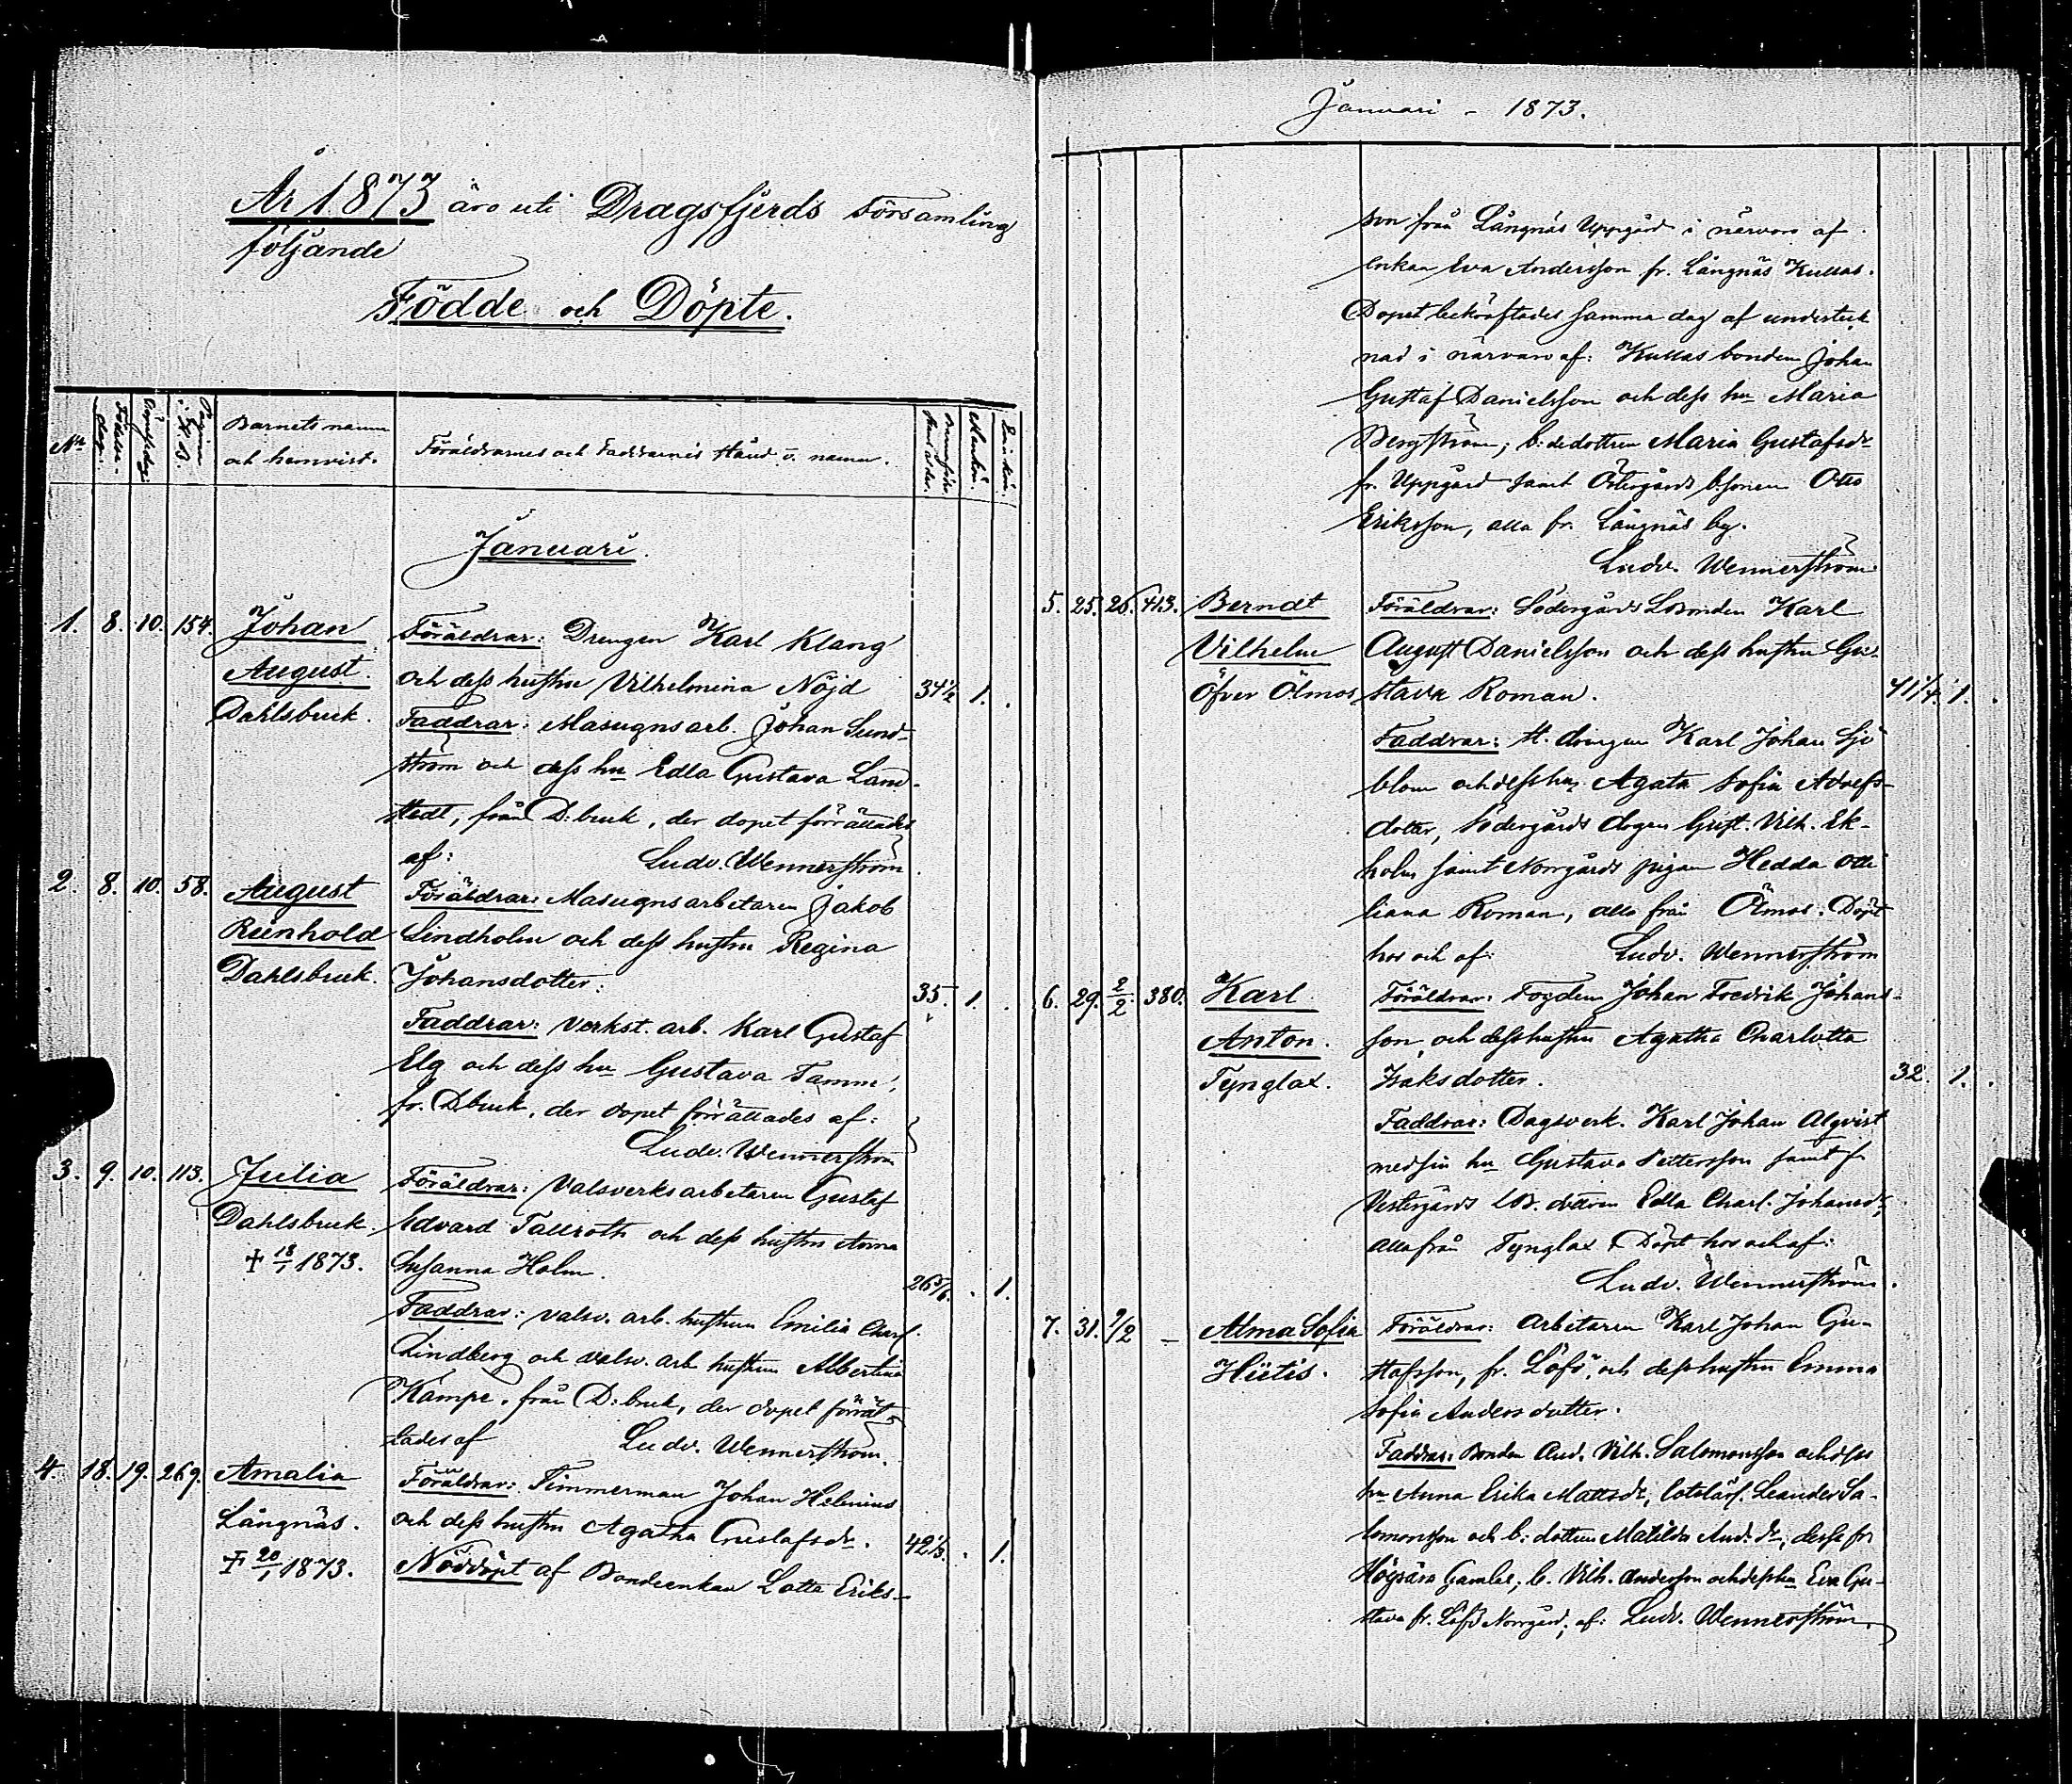 År 1873 äro uti Dragsfjerds Församling
följande
Födde och Döpte.
No
Födelse-
dag.
Döpelsedag
Pagina
i K. B.
Barnets namn
och hemvist.
Föräldrarnes och Faddrarnes stånd o. namn.
Mankön.
Qvinkön.
Januari.
1. 8. 10. 154. Johan Föräldrar: Drengen Karl Klang
August. och dess hustru Vilhelmina Nöjd 34 1/2 1. .
Dahlsbruk. Faddrar: Masugnsarb. Johan Sund-
ström och dess hu Edla Gustava Land-
stedt, från D:bruk, der dopet förrättades
af: Ludv. Wennerström
2. 8. 10. 58. August Föräldrar: Masugnsarbetaren Jakob
Reinhold Lindholm och dess hustru Regina
Dahlsbruk. Johansdotter. 35. 1. .
Faddrar: Verkst. arb. Karl Gustaf
Elg och dess hu Gustava Tamm,
fr. D.bruk, der dopet förrättades af:
Ludv. Wennerström
3. 9. 10. 113. Julia Föräldrar: Valsverksarbetaren Gustaf
Dahlsbruk. Edvard Tallroth och dess hustru Anna
+ 18/1 1873. Susanna Holm. 26 5/6. . 1.
Faddrar: valsv. arb. hustrun Emilia Charl.
Lindberg och valsv. arb. hustrun Albertina
Kampe, från D:bruk, der dopet förrät-
tades af Ludv. Wennerström.
4. 18. 19. 269. Amalia Föräldrar: Timmerman Johan Helenius
Långnäs. och dess hustru Agatha Gustafsdr. 42 1/3. . 1.
+ 20/1 1873. Nöddöpt af Bondeenkan Lotta Eriks-
Januari - 1873.
son från Långnäs Uppgård i närvaro af
enkan Eva Andersson fr. Långnäs Kullas.
Dopet bekräftades samma dag af underteck-
nad i närvaro af: Kullas bonden Johan
Gustaf Danielsson och dess hu Maria
Bergström; b:dedottren Maria Gustafsdr
fr. Uppgård samt Östergårds b.sonen Otto
Eriksson, alla fr. Långnäs by.
Ludv. Wennerström
5. 25. 26. 413. Berndt Föräldrar: Södergårds Lbonden Karl
Vilhelm August Danielsson och dess hustru Gu-
Öfver Ölmos stava Roman. 41 1/4. 1. .
Faddrar: st. drengen Karl Johan Sjö-
blom och dess hu Agata Sofia Adolfs-
dotter, Södergårds drgen Gust. Vilh. Ek-
holm samt Norrgårds pigan Hedda Otti-
liana Roman, alla från Ölmos. Döpt
hos och af: Ludv. Wennerström
6. 29. 2/2. 380. Karl Föräldrar: Fogden Johan Fredrik Johans-
Anton. son och dess hustru Agatha Charlotta
Tynglax. Isaksdotter. 32. 1. .
Faddrar: Dagsverk. Karl Johan Alqvist
med sin hu Gustava Pettersson samt
Vestergårds Edla Charl. Johansdr,
alla från Tynglax. Döpt hos och af:
Ludv. Wennerström.
7. 31. 9/2 - Alma Sofia Föräldrar: Arbetaren Karl Johan Gu-
Hiitis. stafsson, fr. Löfö, och dess hustru Emma
Sofia Andersdotter.
Faddrar: Bonden And. Vilh. Salomonsson och dess
hu Anna Erika Mattsdr, lotslärl. Leander Sa-
lomonsson och b: dottren Matilda And. dr, desse fr
Högsåra Gambel; b. Vilh. Andersson och dess hu Eva Gu-
stava fr. Löfö Norrgård; af: Ludv. Wennerström